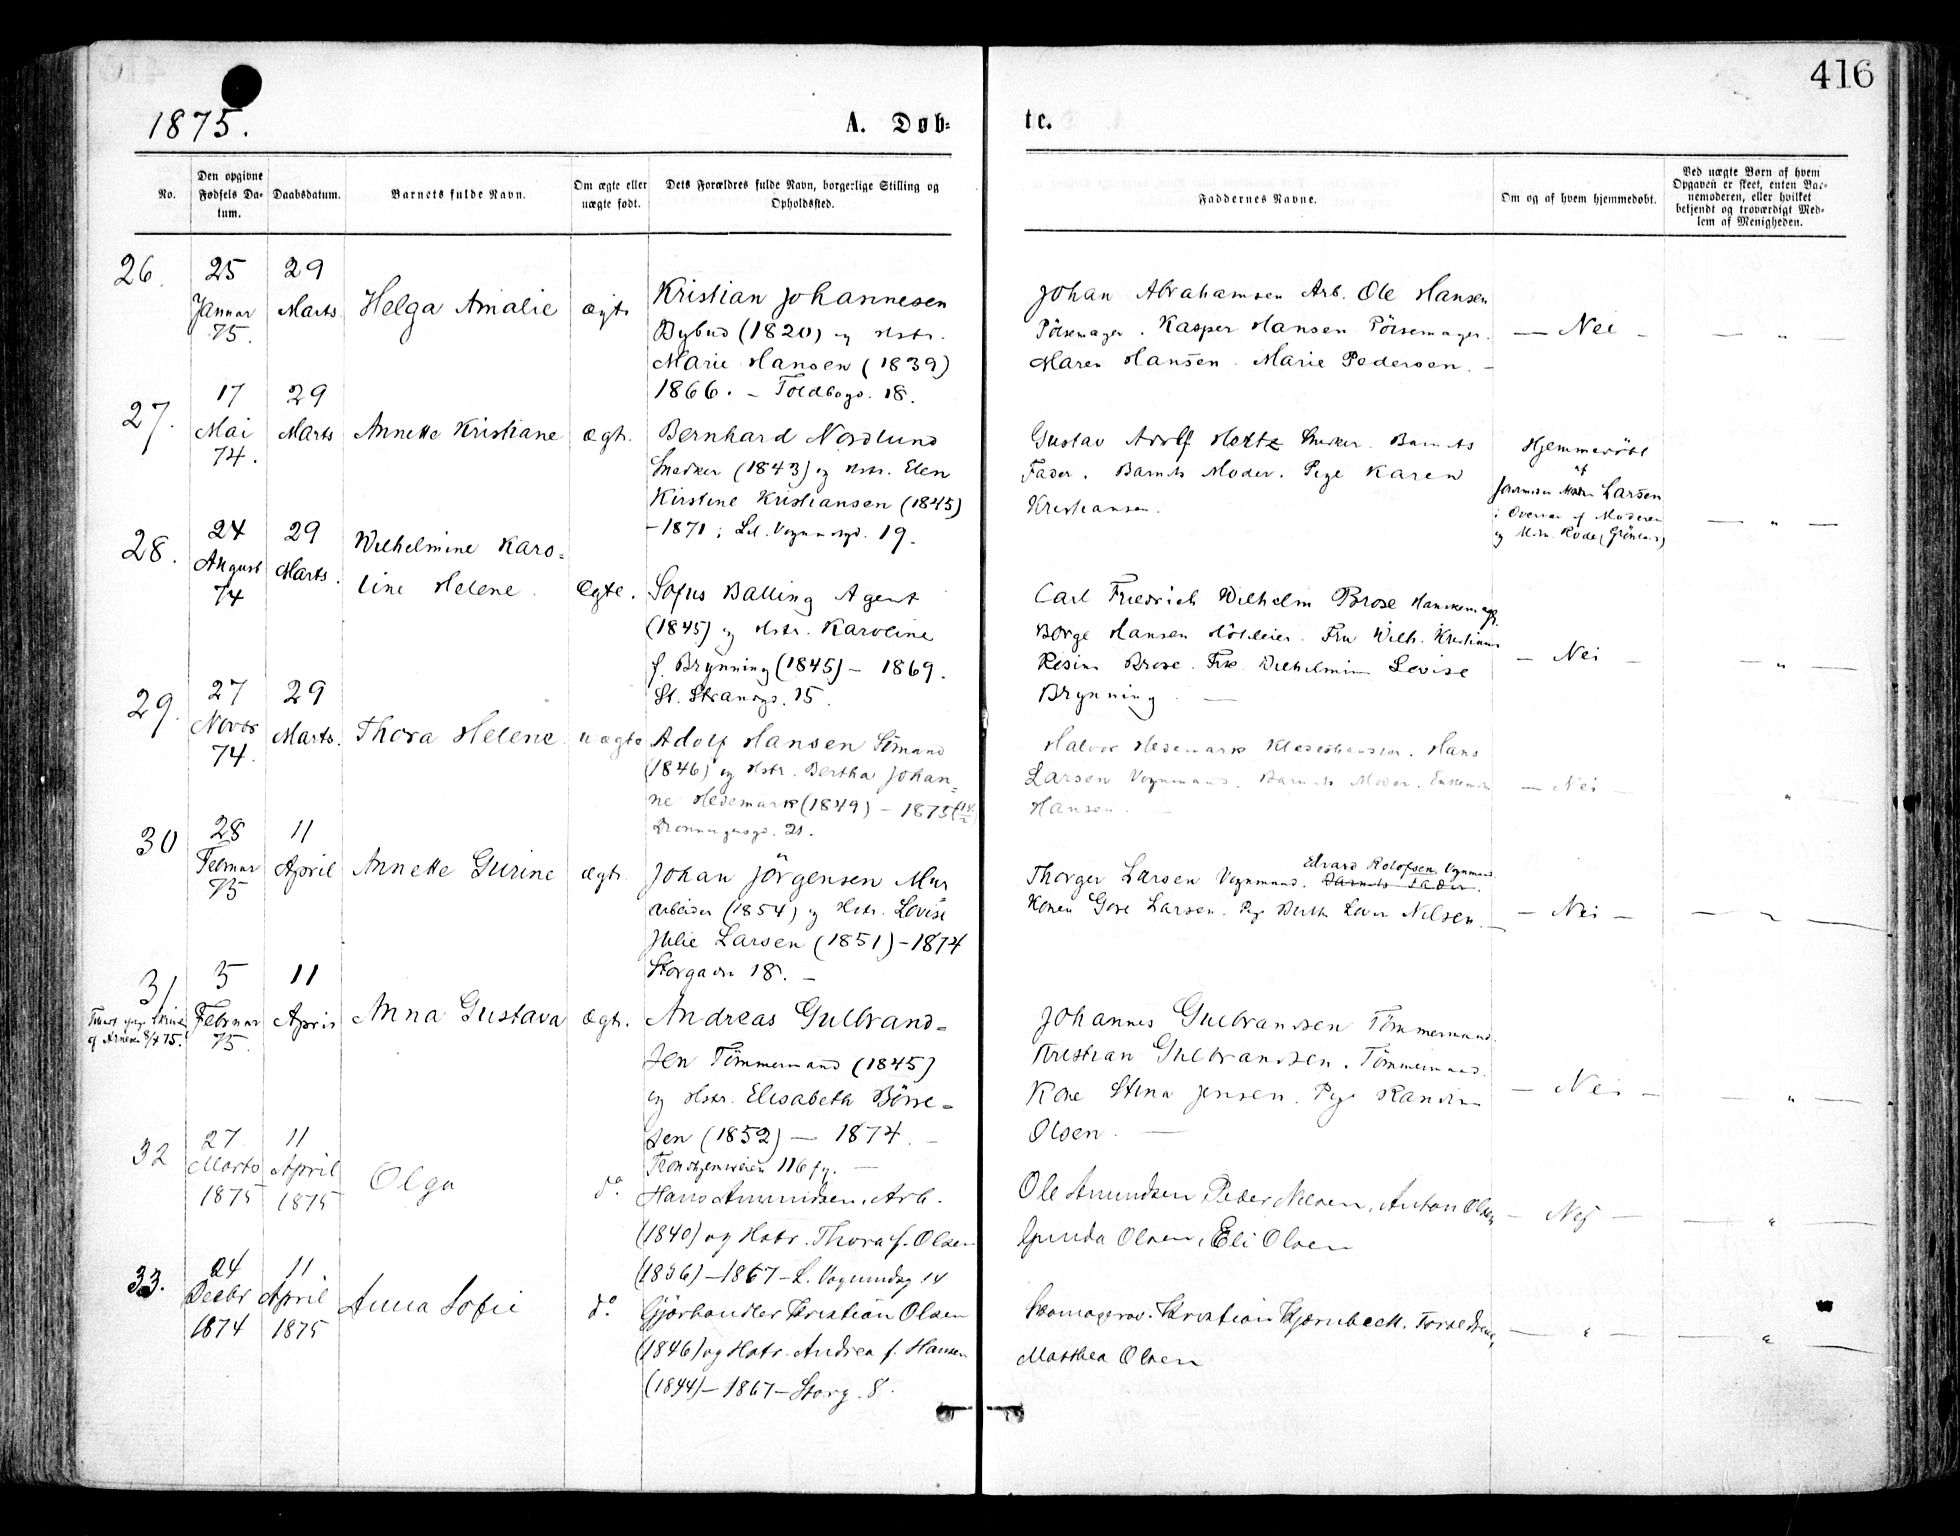 416
1875.
A. Døb-
te.
No.
Den opgivne
Fødsels Da-
tum.
Daabsdatum.
Barnets fulde Navn.
Om ægte eller
uægte født.
Dets Forældres fulde Navn, borgerlige Stilling og
Opholdssted.
Faddernes Navne.
Om og af hvem hjemmedøbt.
Ved uægte Børn af hvem
Opgaven er skeet, enten Bar-
nemoderen, eller hvilket
beljendt og troværdigt Med-
lem af Menigheden.
26.
25
Januar
75.
29
Marts
Helga Amalie
ægte
Kristian Johannesen
Bybud (1820) og Hstr.
Marie Hansen (1839)
1866. - Toldbogd. 18.
Johan Abrahamsen Arb. Ole Hansen
Pölsemager. Kasper Hansen Pölsemager.
Maren Hansen. Marie Pedersen. -
- Nei -
- " -
27.
17
Mai
74.
29
Marts
Annette Kristiane
ægt.
Bernhard Nordlund
Snedker (1843) og Hstr. Elen
Kirstine Kristiansen (1845)
- 1871; Lil. Vognmgd. 19.
Gustav Adolf Hertz Snedker. Barnets
Fader. Barnets Moder. Pige Karen
Kristiansen.
Hjemmedöbt
af
Jordmoder Larsen
i Overvær af Moderen
og Mdm. Rode (Grönland)
- " -
28.
24
August
74
29
Marts.
Wilhelmine Karo=
line Helene.
Ægte.
Sofus Balling Agent
(1845) og Hstr. Karoline
f. Brynning (1845) - 1869.
St. Strandgd. 15.
Carl Friedrich Wilhelm Brose Hanskemagr.
Börge Hansen Fru Wilh. Kristiane
Resine Brose. Frk. Wilhelmine Lovise
Brynning -
- Nei -
- " -
29.
27
Novbr
74.
29
Marts.
Thora Helene.
uægte
Adolf Hansen Sömand
(1846) og Hstr. Bertha Johan=
ne Hedemark (1849) - 1875 (14/2)
Dronningensgd. 21.
Halvor Hedemark Klædeshandler. Hans
Larsen Vognmand. Barnets Moder. Enkemdm
Hansen. -
- Nei -
"
30
28
Februar
75
11
April
Annette Gurine
ægt.
Johan Jörgensen Mur
arbeider (1854) og Hstr. Lovise
Julie Larsen (1851) - 1874
Storgaden 18. -
Edvard Rolofsen Vognmand.
Thorger Larsen Vognmand. Barnets Fader.
Konen Gore Larsen. Pige Berthe Nilsen. -
- Nei -
- " -
31
5
Februar
75.
11
April
af Arnesen 8/4 75.
Anna Gustava
Ægt.
Andreas Gulbrand=
sen Tömmermand (1845)
og Hstr. Elisabeth Börre=
sen (1852) - 1874. -
Trondhjemsveien 116 f. -
Johannes Gulbrandsen Tömmermand.
Kristian Gulbrandsen. Tömmermand.
Kone Stina Jensen. Pige Randine
Olsen. -
- Nei -
- " -
32
27
Marts
1875
11
April
1875
Olga
do
Hans Amundsen, Arb.
(1840) og Hstr. Thora f. Olsen
(1836) - 1867 - L. Vognmdsg. 14
Ole Amundsen, Peder Nilsen, Anton Olsen,
Gunda Olsen, Eli Olsen
- Nej -
- " -
33.
24
Decbr
1874
11
April
1875
Anna Sofie
do
Gjörhandler Kristian Olsen
(1846) og Hstr. Andrea f. Hansen
(1844) - 1867 - Storg. 8.
Skomagersv. Kristian Kjærnbeck. Forældrene,
Matthea Olsen
- " -
- " -